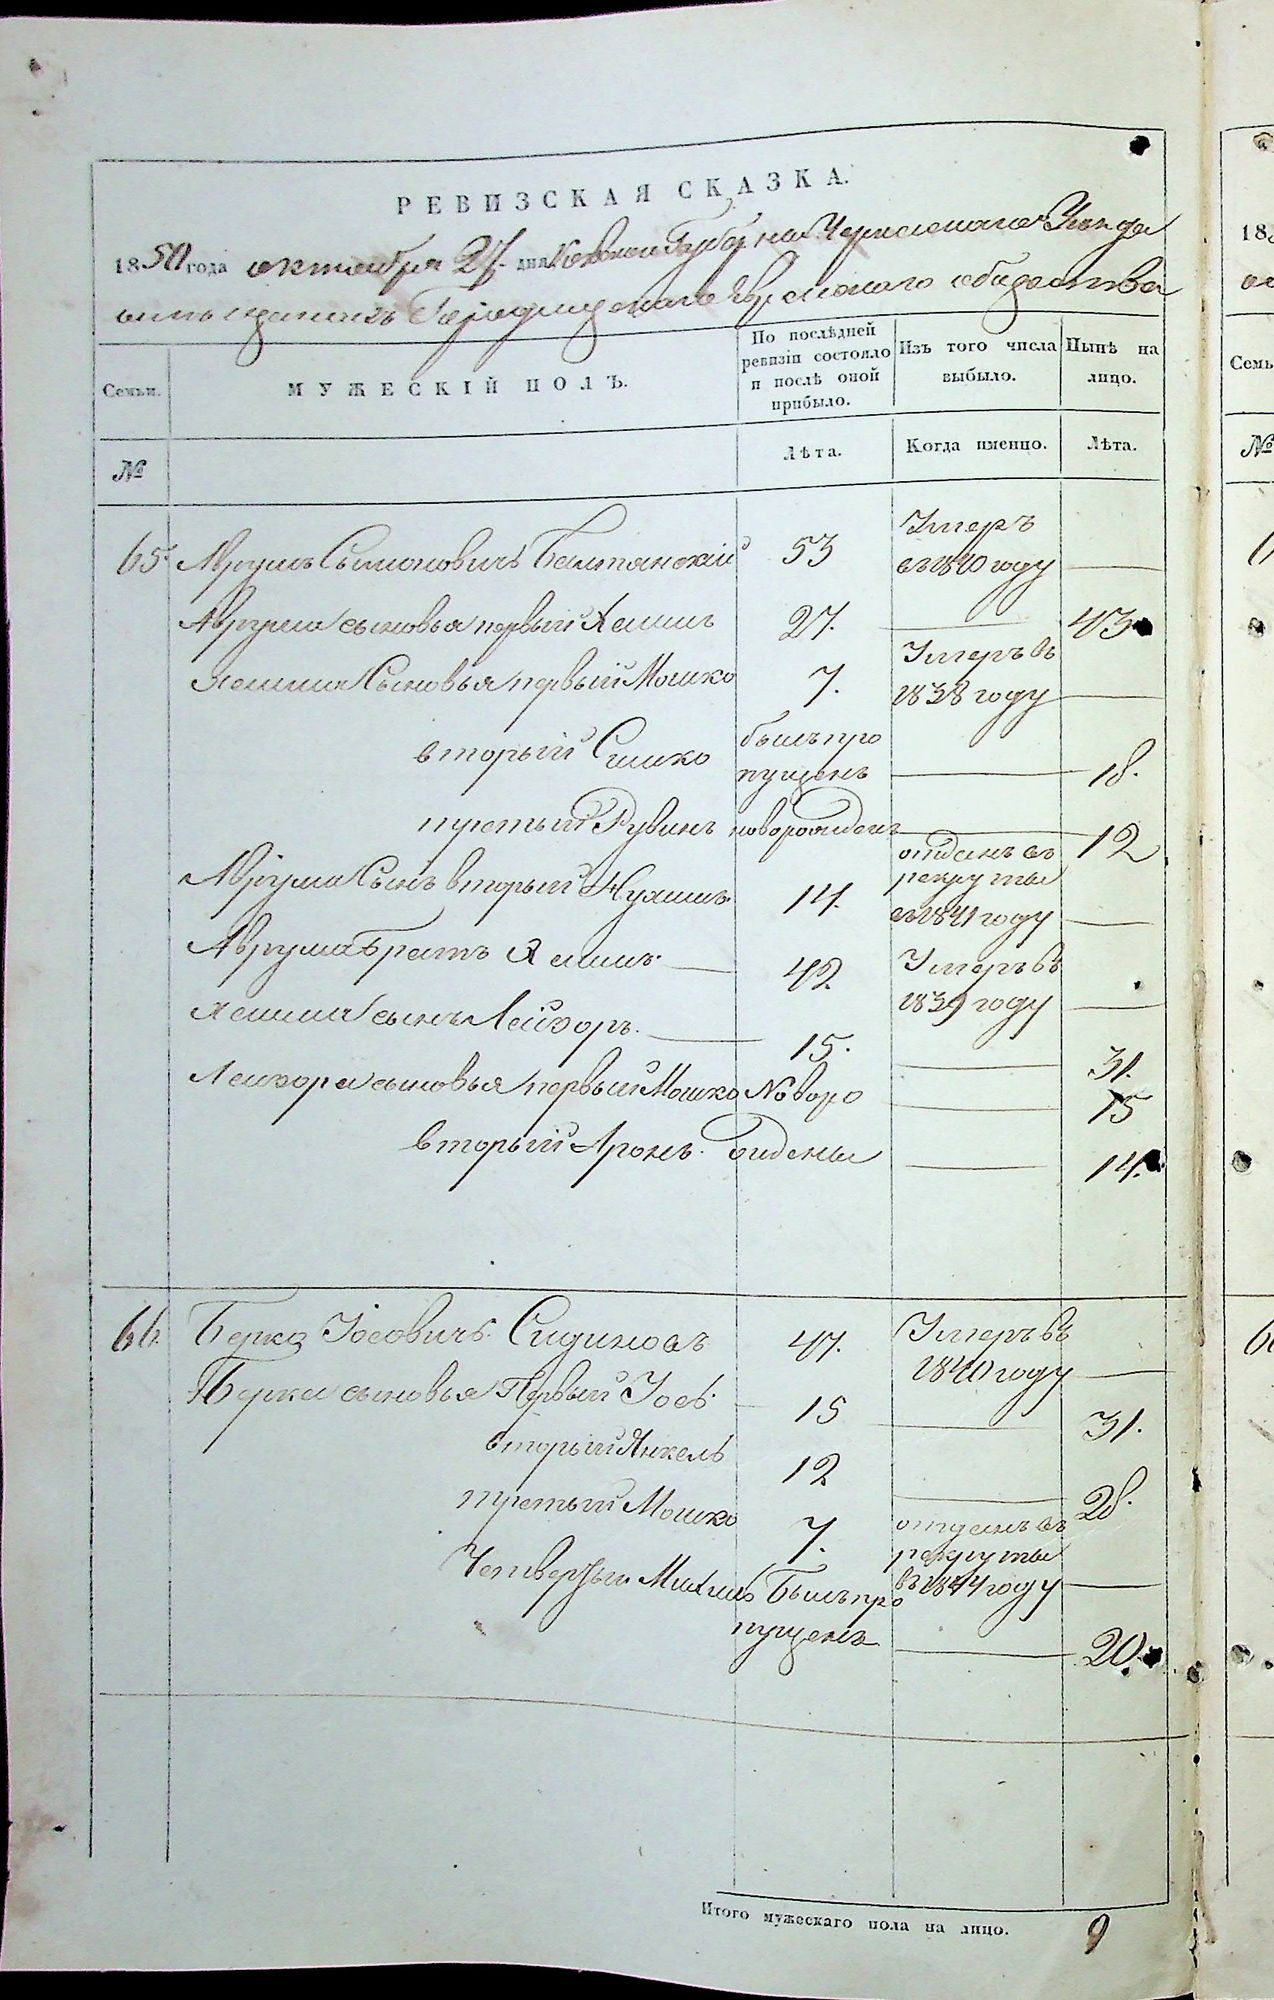 РЕВИЗСКАЯ СКАЗКА.
1850 года октября 27 дня Киевской Губернии Черкаскаго Уѣзда
Городищенскаго Еврейскаго общества
Семьи.
МУЖЕСКІЙ ПОЛЪ.
По послѣдней ревизіи состояло и послѣ оной прибыло.
Изъ того числа выбыло.
Нынѣ на лицо.
№
Лѣта.
Когда именно.
Лѣта.
65. Аврумъ Сымоновичъ Балтянскій 53 Умеръ въ 1840 году —
Аврума сыновья первый Хаимъ 27. — 43
Хаима Сыновья первый Мошко 7. Умеръ въ 1838 году —
вторый Симко былъ пропущенъ — 18.
третьій Рувинъ новорожденъ — 12
Аврума Сынъ вторый Нухимъ 14. отданъ въ рекруты въ 1841 году —
Аврума братъ Хаимъ — 42 Умеръ въ 1839 году —
Хаима сынъ Лейзоръ. — 15. — 31.
Лейзора сыновья первый Мошко Новоро — 15
вторый Аронъ. жидены — 14.
66. Берко Іосовичъ Сидиновъ 47. Умеръ въ 1840 году —
Берка сыновья Первый Іось 15 — 31.
вторый Янкель 12 — 28.
третьій Мошко 7. отданъ въ рекруты въ 1844 году —
Четвертый Былъ пропущенъ — 20.
Итого мужескаго пола на лицо. 9